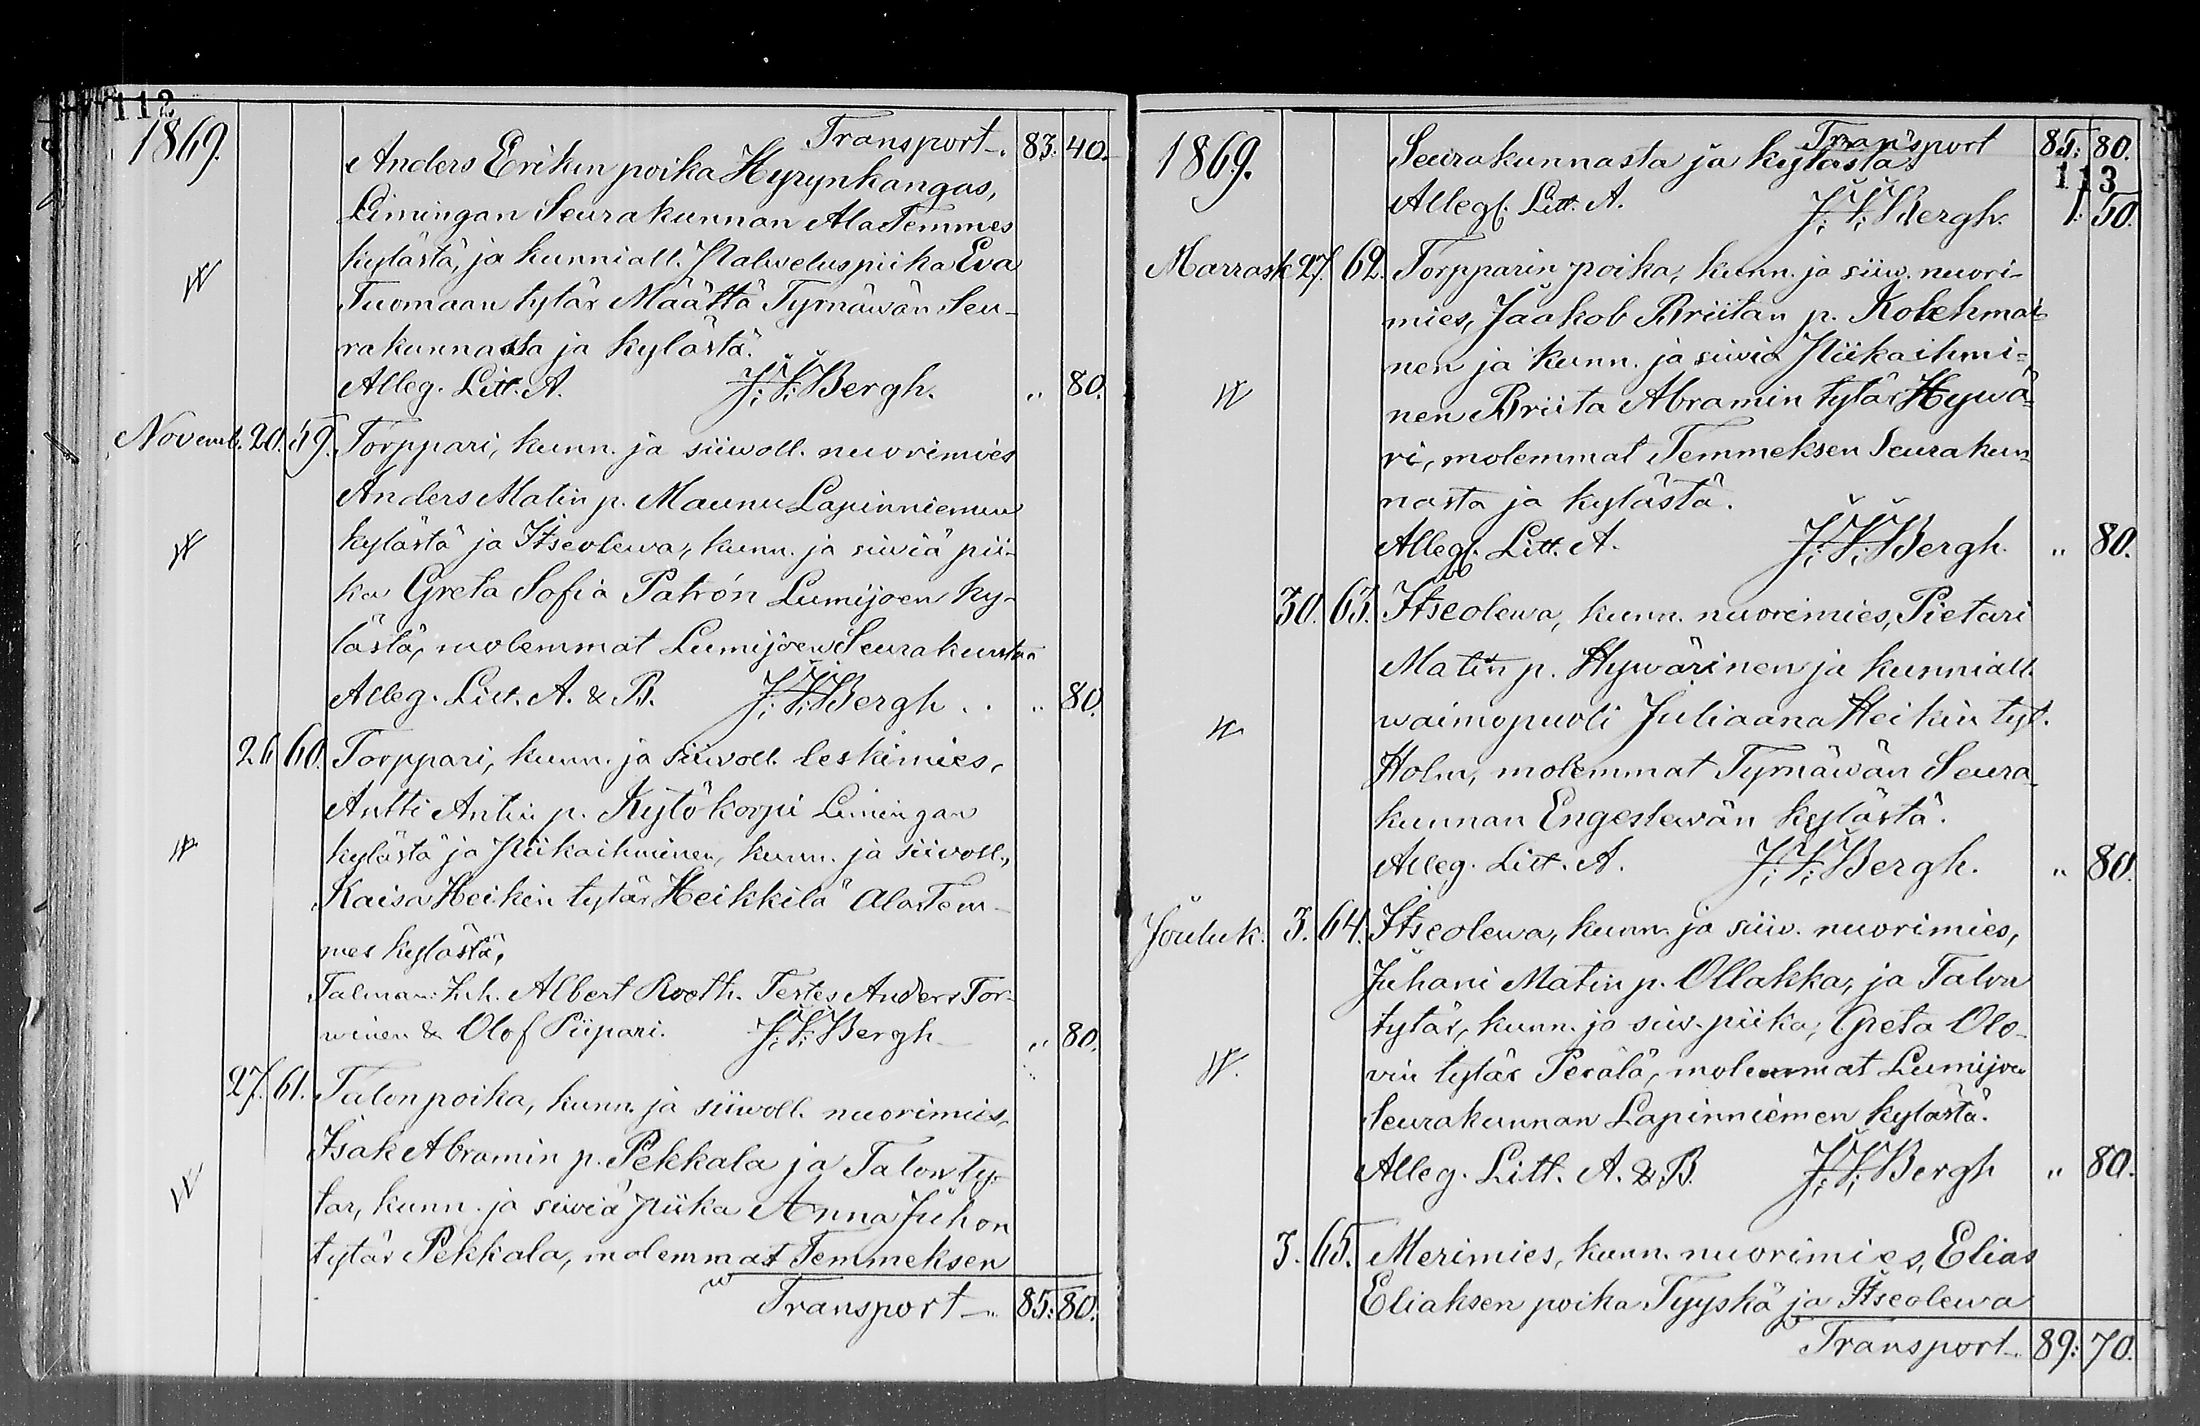 112
1869.
Transport 83: 40.
Anders Erikin poika Hyrynkangas,
Limingan Seurakunnan AlaTemmes
kylästä, ja kunniall. Palweluspiika Eva
Tuomaan tytär Määttä Tyrnäwän Seu-
rakunnasta ja kylästä.
Alleg. Litt. A. J. V. Bergh. " 80.
Novemb. 20. 59. Torppari, kunn. ja siiwoll. nuorimies
Anders Matin p. Maunu Lapinniemen
kylästä ja Itseolewa, kunn. ja siiviä pii-
ka Greta Sofia Patrón Lumijoen ky-
lästä, molemmat Lumijoen Seurakunnan
Alleg. Litt. A. & B. J. V. Bergh . . " 80.
26 60. Torppari, kunn. ja siiwoll. leskimies,
Antti Antin p. Kytökorpi Limingan
kylästä ja Piikaihminen, kunn. ja siivoll.,
Kaisa Heikin tytär Heikkilä AlaTem-
mes kylästä,
Talman: Inh. Albert Roeth. Testes Anders Tor-
winen & Olof Piipari. J. V. Bergh " 80.
27. 61. Talon poika, kunn. ja siiwoll. nuorimies,
Isak Abramin p. Pekkala ja Talon ty-
tär, kunn. ja siiviä piika Anna Juhon
tytär Pekkala, molemmat Temmeksen
Transport 85: 80.
1869.
Transport 85: 80.
113
Seurakunnasta ja kylästä.
Alleg. Litt. A. J. V. Bergh. 1: 50.
Marrask. 27. 62. Torpparin poika, kunn. ja siiw. nuori-
mies, Jaakob Briitan p. Kolehmai-
nen ja kunn. ja siiviä Piikaihmi-
nen Briita Abramin tytär Hywä-
ri, molemmat Temmeksen Seurakun-
nasta ja kylästä.
Alleg. Litt. A. J. V. Bergh. " 80.
30. 63. Itseolewa, kunn. nuorimies, Pietari
Matin p. Hywärinen ja kunniall.
waimopuoli Juliaana Heikin tyt.
Holm, molemmat Tyrnäwän Seura-
kunnan Engeslewän kylästä.
Alleg. Litt. A. J. V. Bergh. " 80.
Jouluk. 3. 64. Itseolewa, kunn. ja siiw. nuorimies,
Juhani Matin p. Ollakka, ja Talon
tytär, kunn. ja siiv. piika, Greta Olo-
vin tytär Perälä, molemmat Lumijoen
Seurakunnan Lapinniemen kylästä.
Alleg. Litt. A. & B. J. V. Bergh " 80.
3. 65. Merimies, kunn. nuorimies, Elias
Eliaksen poika Tyyskä ja Itseolewa
Transport 89: 70.